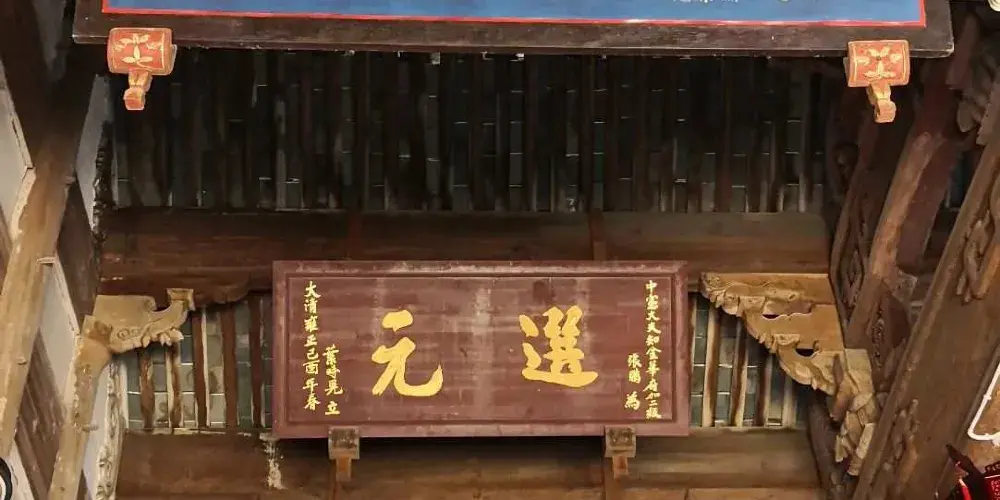 中宪大夫知金華府加二級
張鵬 為
選元
葉時見 立
大清雍正己酉年春